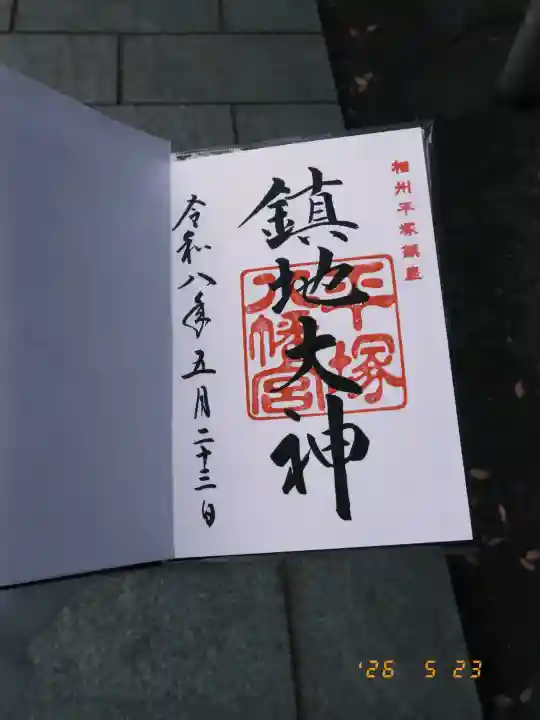 相州平塚鎮座
鎮地大神
平塚
八幡宮
令和八年五月二十三日
'26 5 23